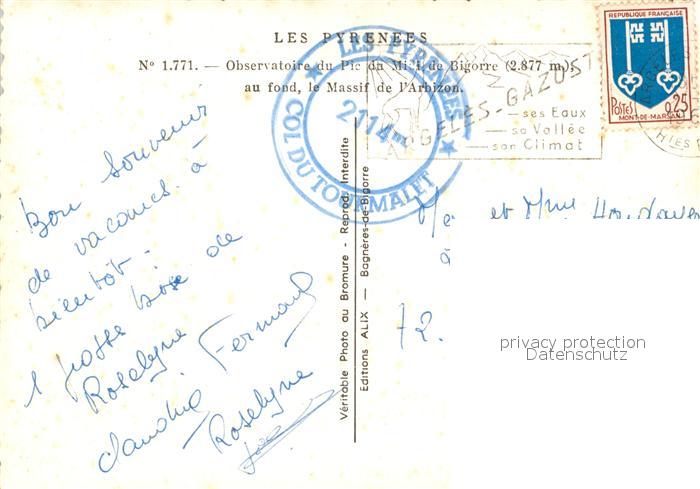 LES PYRENEES
Nº 1.771. — Observatoire du Pic du Midi de Bigorre (2.877 m.),
au fond, le Massif de l'Arbizon.
★ LES PYRENEES ★
2114 m
COL DU TOURMALET
ARGELES-GAZOST
— ses Eaux
— sa Vallée
— son Climat
REPUBLIQUE FRANÇAISE
POSTES
0,25
MONT-DE-MARSAN
HTES P
Bon Souvenir
de vacances. à
bientôt.
1 grosse bise de
Roselyne
Claudine Fernand
Roselyne
Véritable Photo au Bromure - Reprod. Interdite
Editions ALIX — Bagnères-de-Bigorre
et Mme
à
72.
privacy protection
Datenschutz